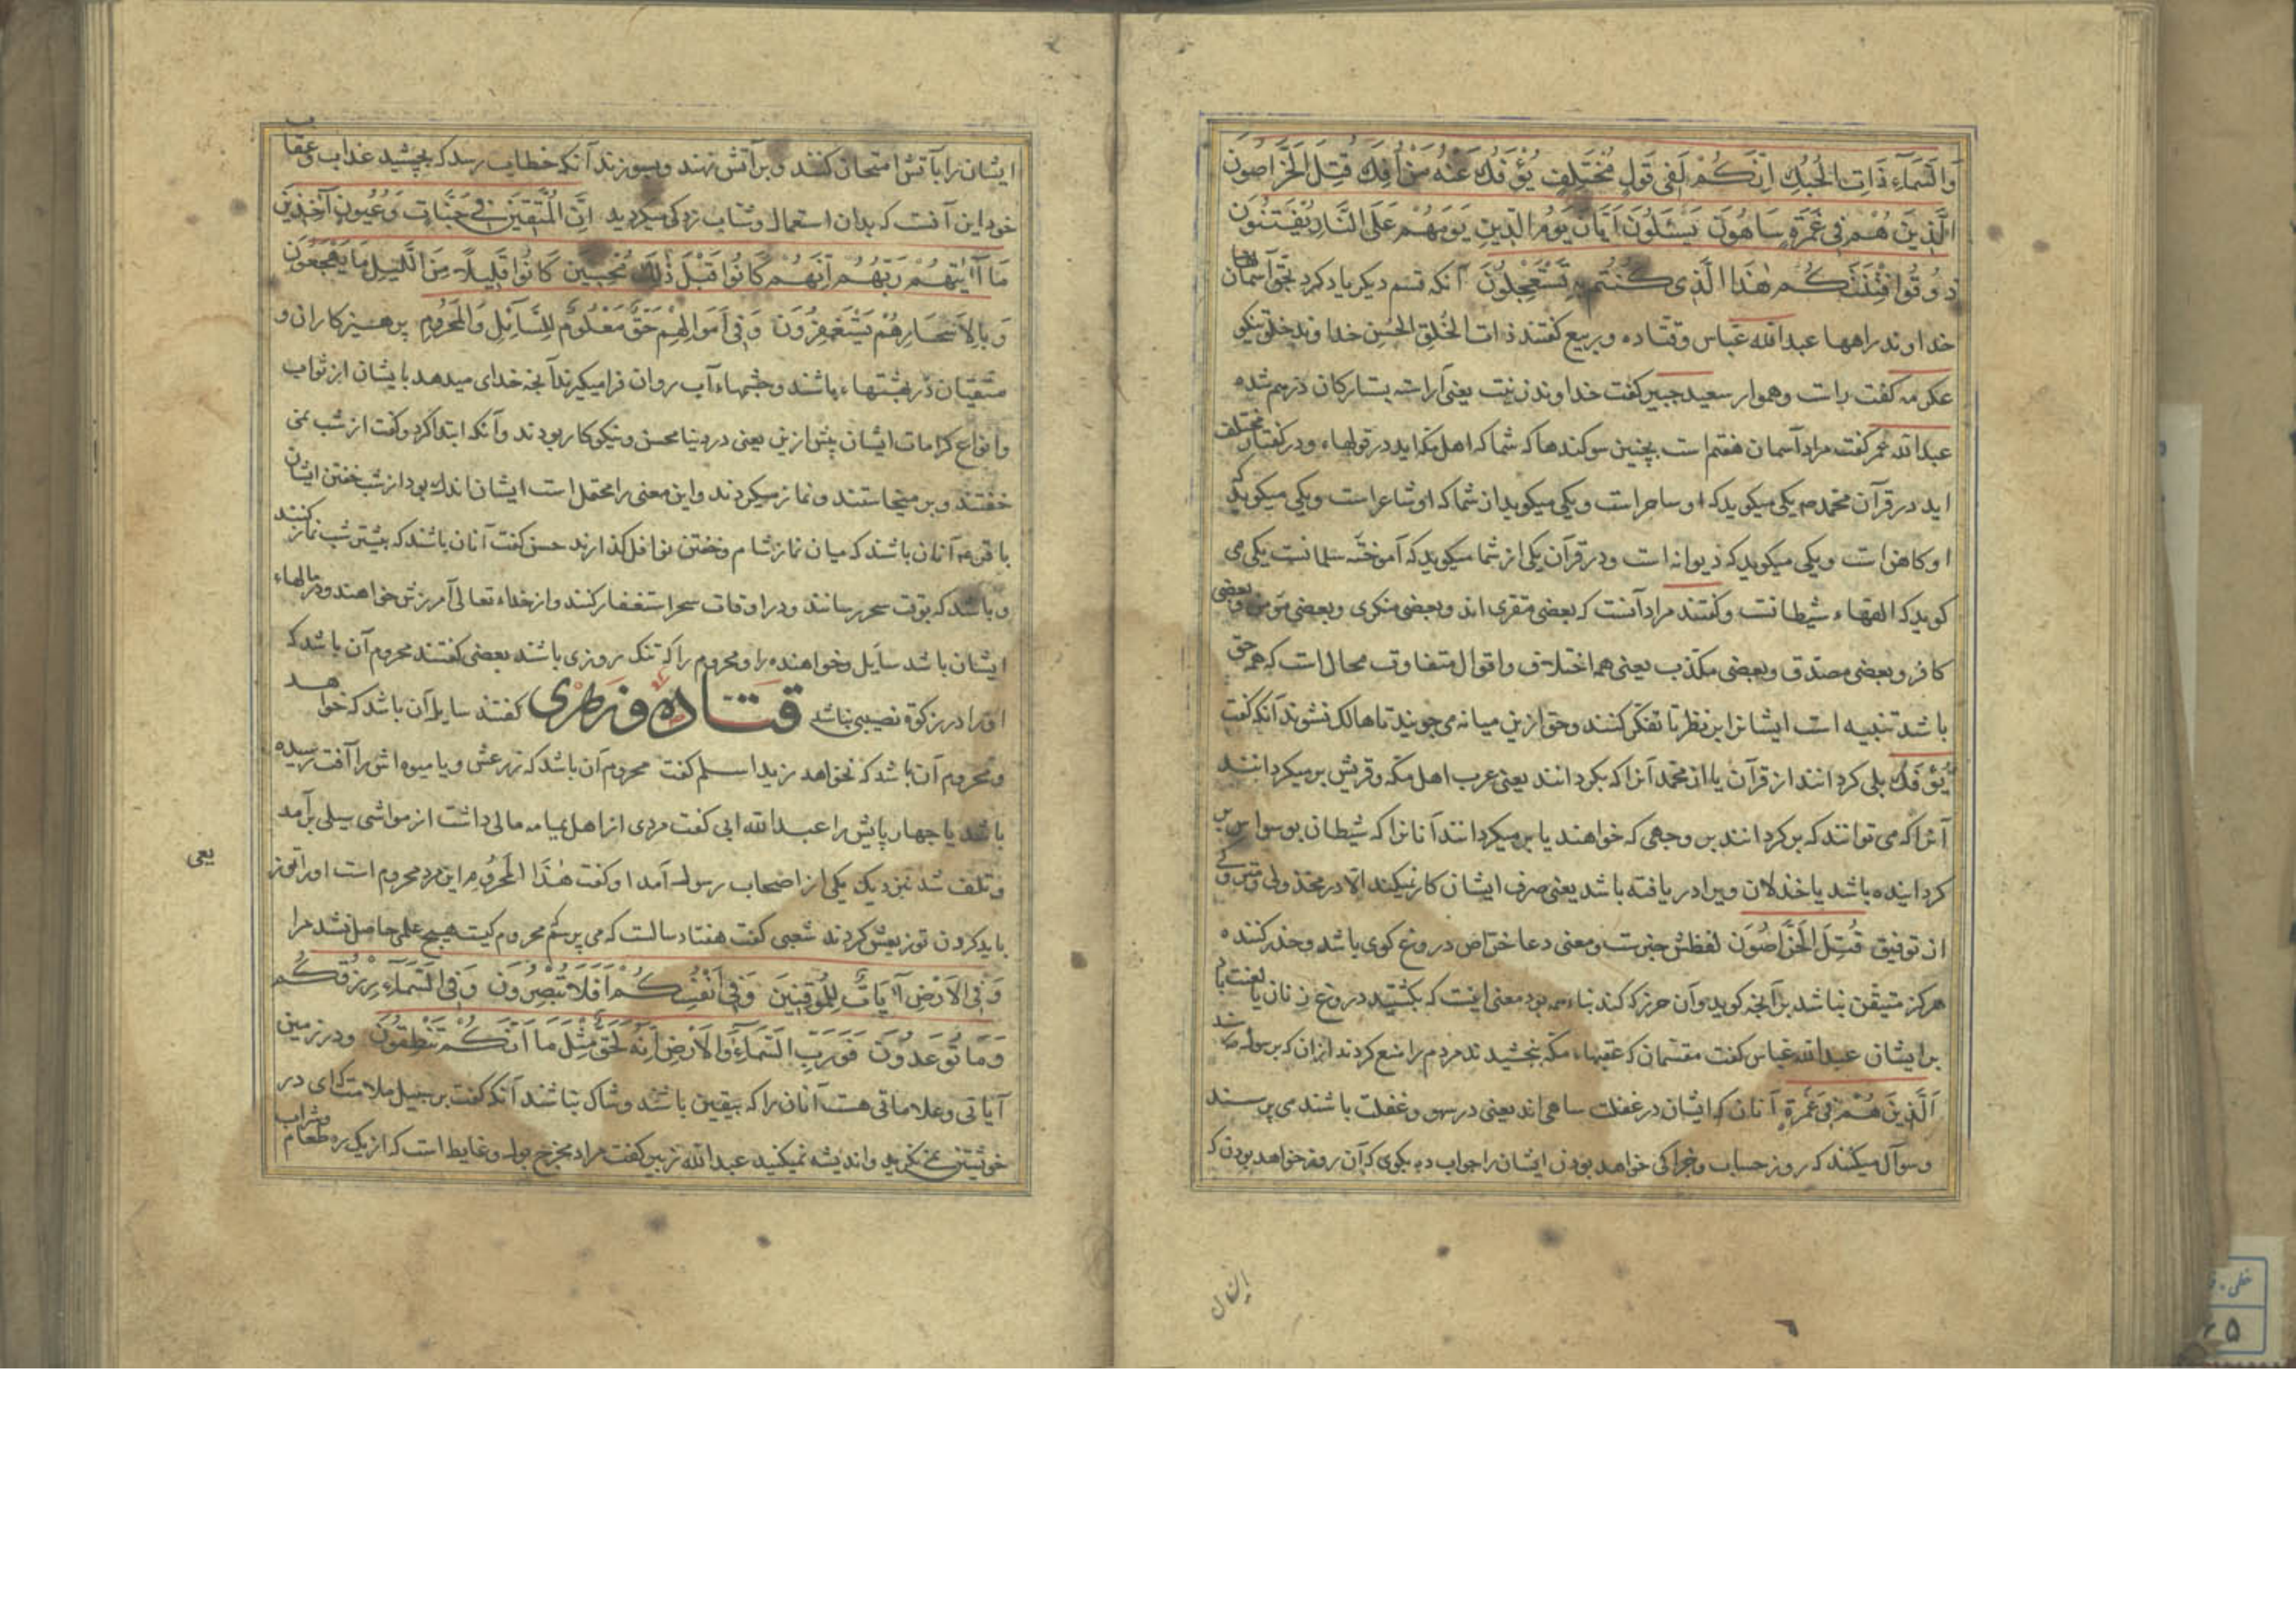 وَالسَّمَآءِ ذَاتِ الْحُبُكِ اِنَّكُمْ لَفِی قَوْلٍ مُخْتَلِفٍ يُؤْفَكُ عَنْهُ مَنْ اُفِكَ قُتِلَ الْخَرَّاصُونَ
الَّذِينَ هُمْ فِی غَمْرَةٍ سَاهُونَ يَسْئَلُونَ اَيَّانَ يَوْمُ الدِّينِ يَوْمَ هُمْ عَلَی النَّارِ يُفْتَنُونَ
ذُوقُوا فِتْنَتَكُمْ هٰذَا الَّذِی كُنْتُمْ بِهِ تَسْتَعْجِلُونَ آنكه قسم ديكر ياد كرد بحق آسمانها
خداوند راهها عبدالله عباس وقتاده وربيع كفتند ذات الخلق الحسن خداوند خلق نيكو
عكرمه كفت راست وهموار سعيد جبير كفت خداوند زينت يعنی آراسته بستاركان درهم شده
عبدالله عمر كفت مراد آسمان هفتم است بچنين سوكندها كه شما كه اهل مكه ايد در قولهاء ودر كفتار مختلف
ايد در قرآن محمد يكی ميكويد كه او ساحر است ويكی ميكويد از شما كه او شاعر است ويكی ميكويد كه
او كاهن است ويكی ميكويد كه ديوانه است ودر قرآن يكی از شما ميكويد كه آموخته سلمانست يكی می
كويد كه القاء شيطانست وكفتند مراد آنست كه بعضی مقری اند وبعضی منكری وبعضی مؤمن وبعضی
كافر وبعضی مصدق وبعضی مكذب يعنی همه اختلاف واقوال متفاوت محال است كه همه حق
باشد تنبيه است ايشانرا بر نظر تا تفكر كنند وحق ازين ميانه می جويند تا هالك نشوند آنكه كفت
يُؤْفَكُ بلی كردانند از قرآن يا از محمد آنرا كه بكردانند يعنی عرب اهل مكه وقريش بر ميكردانند
آنرا كه می توانند كه بركردانند بر وجهی كه خواهند يا بر ميكردانند آنانرا كه شيطان بوسواس بر
كردانيده باشد يا خذلان ويرا دريافته باشد يعنی صرف ايشان كار نميكند الا در مخذولی
از توفيق قُتِلَ الْخَرَّاصُونَ لفظش خبرست ومعنی دعا خراص دروغ كوی باشد وحذر كننده
هركز متيقن نباشد بر آنچه كويد وآن حرز كه كند بناء معنی اينست كه بكشتند دروغ زنان يا لعنت باد
بر ايشان عبدالله عباس كفت مقتسمان كه عقبهاء مكه ببخشيدند مردم را منع كردند از ان كه برسول رسند
اَلَّذِينَ هُمْ فِی غَمْرَةٍ آنان كه ايشان در غفلت ساهی اند يعنی در سهو وغفلت باشند می پرسند
وسوآل ميكنند كه روز حساب وجزا كی خواهد بودن ايشان را جواب ده بكوی كه آن روز خواهد بودن كه
ايشان را
ايشان را بآتش امتحان كنند وبر آتش نهند وبسوزند آنكه خطاب رسد كه بچشيد عذاب وعقاب
خود اين آنست كه بدان استعمال وشتاب زدكی ميكرديد اِنَّ الْمُتَّقِينَ فِی جَنَّاتٍ وَعُيُونٍ آخِذِينَ
مَا آتٰيهُمْ رَبُّهُمْ اِنَّهُمْ كَانُوا قَبْلَ ذٰلِكَ مُحْسِنِينَ كَانُوا قَلِيلاً مِنَ اللَّيْلِ مَا يَهْجَعُونَ
وَبِالْاَسْحَارِ هُمْ يَسْتَغْفِرُونَ وَفِی اَمْوَالِهِمْ حَقٌّ مَعْلُومٌ لِلسَّآئِلِ وَالْمَحْرُومِ پرهيزكاران و
متقيان در بهشتهاء باشند وچشمهاء آب روان فرا ميكيرند آنچه خدای ميدهد بايشان از ثواب
وانواع كرامات ايشان پيش ازين يعنی در دنيا محسن ونيكوكار بودند وآنكه ابتدا كرد وكفت از شب نمی
خفتند وبر ميخاستند ونماز ميكردند واين معنی را محتمل است ايشان اندك بود از شب خفتن ايشان
باقر ع آنان باشند كه ميان نماز شام وخفتن نوافل كذارند حسن كفت آنان باشند كه بيشتر شب نماز كنند
وباشد كه بوقت سحر رسانند ودر اوقات سحر استغفار كنند واز خداء تعالی آمرزش خواهند ودر مالهاء
ايشان باشد سايل وخواهنده را ومحروم را كه تنك روزی باشند بعضی كفتند محروم آن باشد كه
او را در زكوة نصيبی نباشد قتاده وزهری كفتند سايل آن باشد كه خواهد
ومحروم آن باشد كه نخواهد زيد اسلم كفت محروم آن باشد كه زرعش ويا ميوه اش را آفت رسيده
باشد يا چهارپايش را عبدالله ابی كفت مردی از اهل يمامه مالی داشت از مواشی سيلی برآمد
وتلف شد نزديك يكی از اصحاب رسول آمد او كفت هٰذَا الْمَحْرُوم اين مرد محروم است او را
بايد كردن توزيعش كردند شعبی كفت هفتاد سالست كه می پرسم محروم كيست هيچ علمی حاصل نشد مرا
يعی
وَفِی الْاَرْضِ آيَاتٌ لِلْمُوقِنِينَ وَفِی اَنْفُسِكُمْ اَفَلَا تُبْصِرُونَ وَفِی السَّمَآءِ رِزْقُكُمْ
وَمَا تُوعَدُونَ فَوَرَبِّ السَّمَآءِ وَالْاَرْضِ اِنَّهُ لَحَقٌّ مِثْلَ مَا اَنَّكُمْ تَنْطِقُونَ ودر زمين
آياتی وعلاماتی هست آنان را كه بيقين باشند وشاك نباشند آنكه كفت بر سبيل ملامت كه ای در
خويشتن نمی نكريد وانديشه نميكنيد عبدالله زبير كفت مراد مخرج بول وغايط است كه از يك ره طعام وشراب